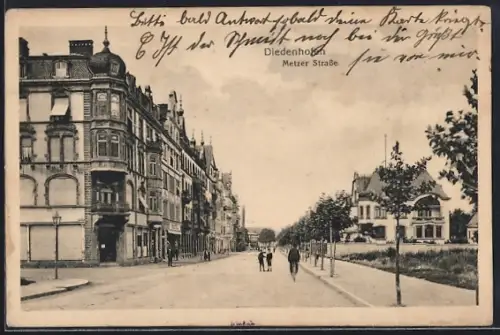 Bitte bald Antwort sobald deine Karte kriegst
Ist der Schmidt noch bei dir Grüße
sie von mir
Diedenhofen
Metzer Straße